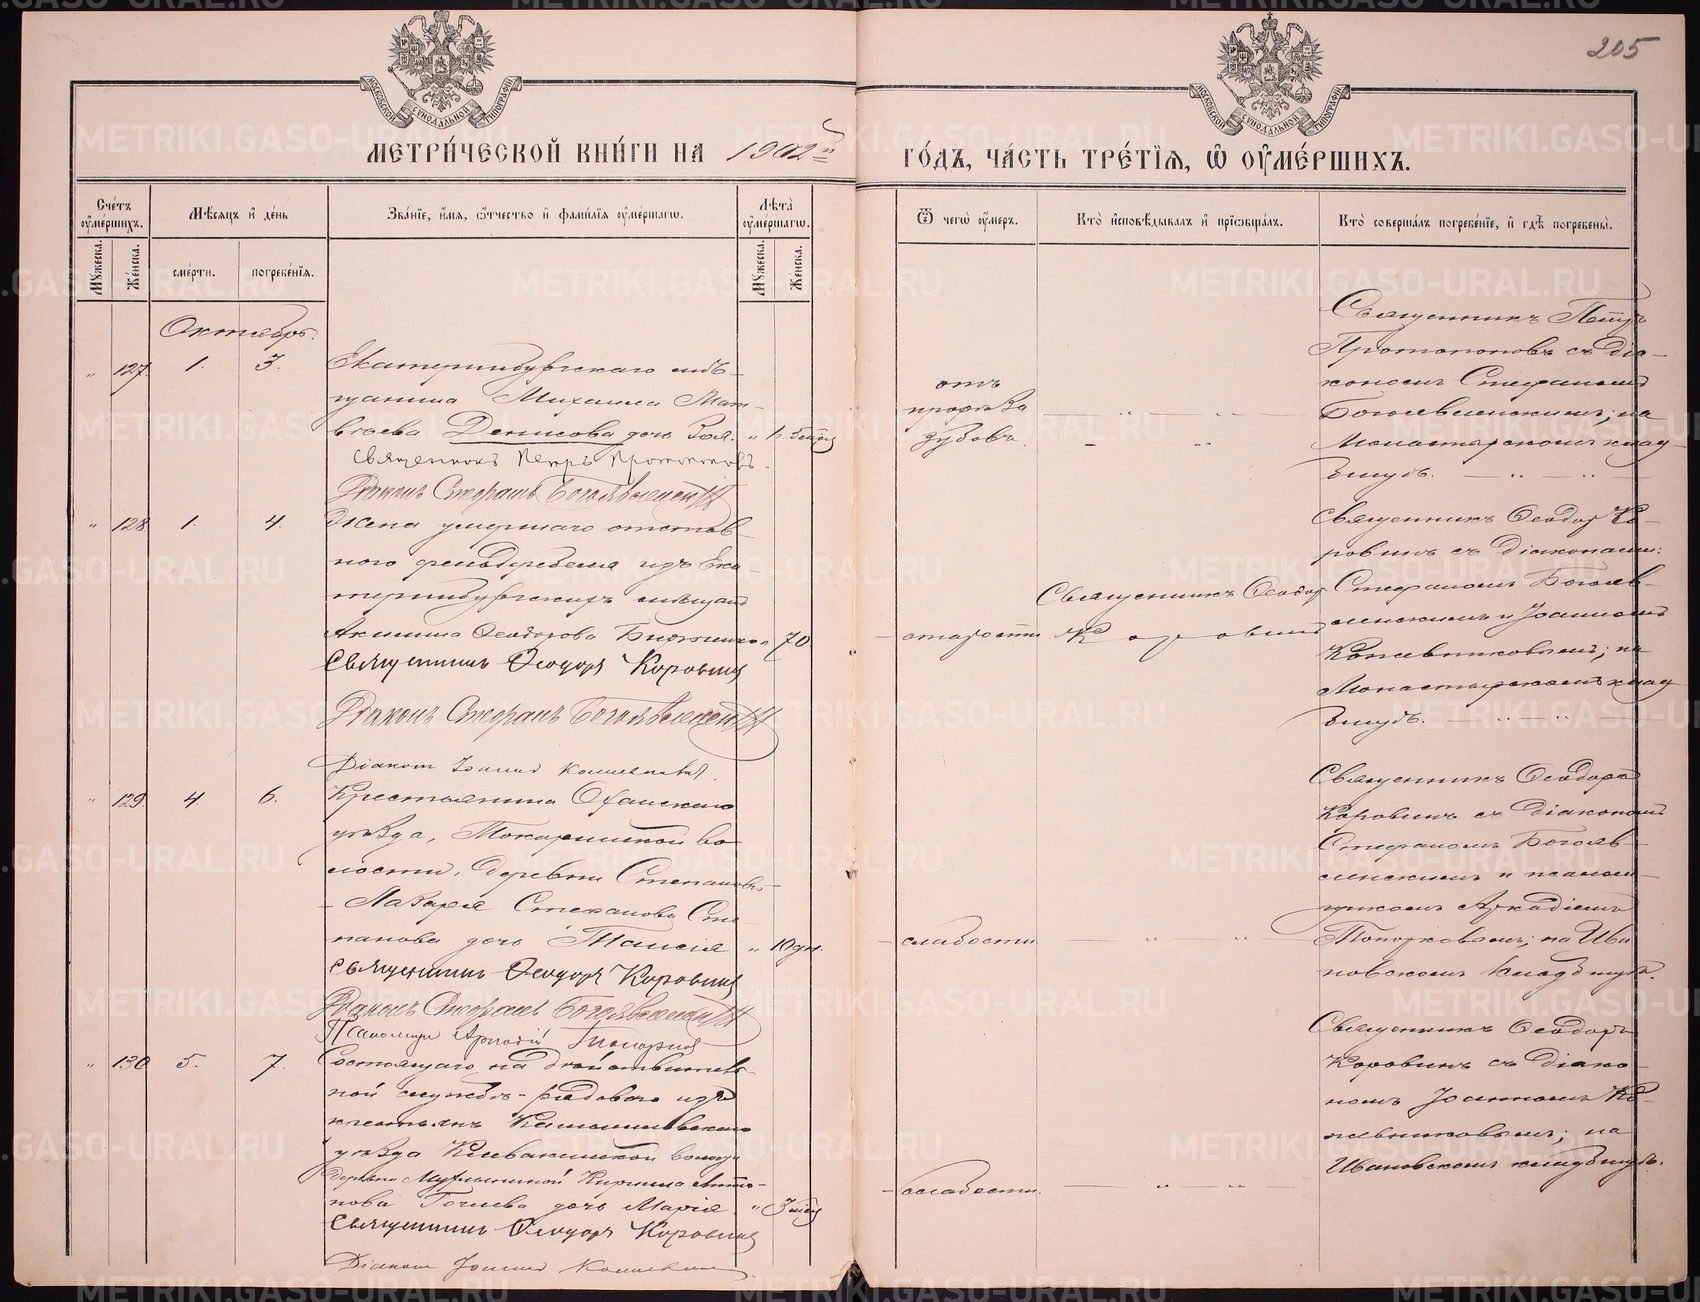 205
МЕТРИ́ЧЕСКОЙ КНИ́ГИ НА 1902й ГО́ДЪ, ЧА́СТЬ ТРЕ́ТІѦ, Ѡ ОУ҆МЕ́РШИХЪ.
Сче́тъ оу҆ме́ршихъ.
Мꙋжеска.
Же́нска.
Мѣ́сѧцъ и҆ де́нь
сме́рти.
погребе́нїѧ.
Зва́нїе, и҆́мѧ, ѻ҆́тчество и҆ фами́лїѧ оу҆ме́ршагѡ.
Лѣта̀ оу҆ме́ршагѡ.
Мꙋжеска.
Же́нска.
Ѿ чегѡ̀ оу҆́меръ.
Кто̀ и҆сповѣ́дывалъ и҆ прїѡбща́лъ.
Кто̀ соверша́лъ погребе́нїе, и҆ гдѣ̀ погребены̀.
Октябрь.
" 127. 1. 3.
Екатеринбургскаго мѣ-
щанина Михаила Мат-
вѣева Денисова дочь Зоя. "
Священникъ Петръ Протопоповъ.
Діаконъ Стефанъ Богоявленскій
отъ
прорѣза
зубовъ.
Священникъ Петръ
Протопоповъ съ діа-
кономъ Стефаномъ
Богоявленскимъ; на
Монастырскомъ клад-
бищѣ.
" 128. 1. 4.
Жена умершаго отстав-
ного фельдфебеля изъ Ека-
теринбургскихъ мѣщанъ
Акилина Ѳеодорова " 70.
Священникъ Ѳеодоръ Коровинъ
Діаконъ Стефанъ Богоявленскій
Діаконъ Іоаннъ
старости
Священникъ Ѳеодоръ
Коровинъ
Священникъ Ѳеодоръ Ко-
ровинъ съ діаконами:
Стефаномъ Богояв-
ленскимъ и Іоанномъ
на
Монастырскомъ клад-
бищѣ.
" 129. 4. 6.
Крестьянина Оханскаго
уѣзда, Токаринской во-
лости, деревни
Лазаря Степанова Сте-
панова дочь Таисія " 10 дн.
Священникъ Ѳеодоръ Коровинъ
Діаконъ Стефанъ Богоявленскій
Псаломщикъ Аркадій
слабости
Священникъ Ѳеодоръ
Коровинъ съ діакономъ
Стефаномъ Богояв-
ленскимъ и псалом-
щикомъ Аркадіемъ
Топорковымъ; на Ива-
новскомъ кладбищѣ.
" 130 5. 7.
Состоящаго на дѣйствитель-
ной службѣ рядового изъ
крестьянъ Камышловскаго
уѣзда Клевакинской волости
деревни Кирилла Анто-
нова дочь Марія "
Священникъ Ѳеодоръ Коровинъ
Діаконъ Іоаннъ
слабости.
Священникъ Ѳеодоръ
Коровинъ съ діако-
номъ Іоанномъ
на
Ивановскомъ кладбищѣ.